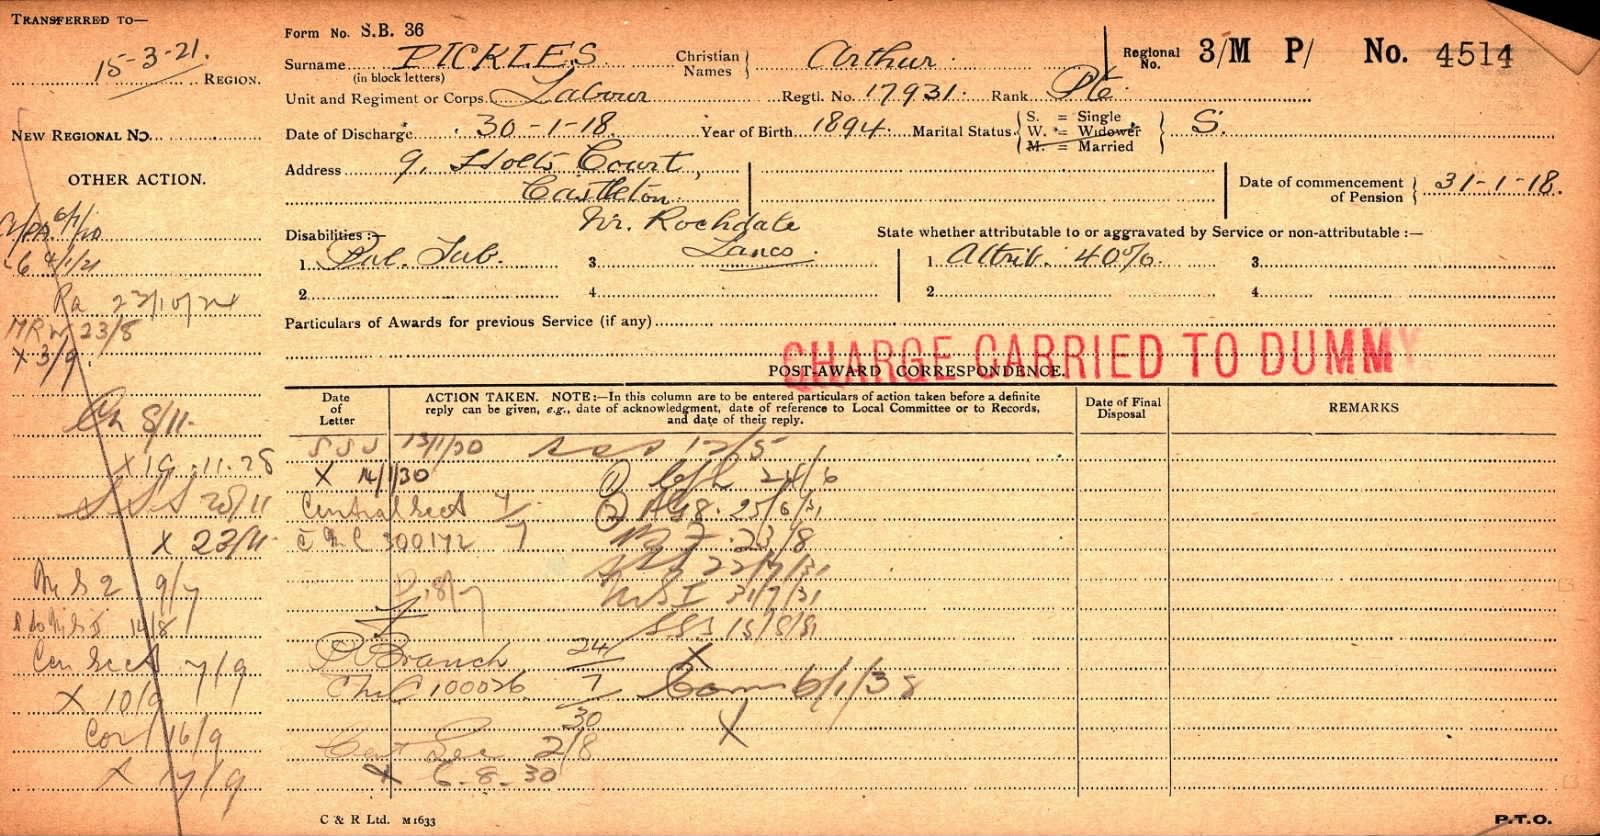 TRANSFERRED TO—
15-3-21.
REGION.
NEW REGIONAL NO.
OTHER ACTION.
6/1/20
4/1/21
Ra 23/10/24
MRW 23/8
X 3/9.
8/11.
X 19.11.28
SSS 20/11
X 23/11
MS2 9/7
14/8
Cen Sect 7/9
X 10/9
Cor 16/9
X 17/9
Form No. S.B. 36
Surname PICKLES Christian Names Arthur.
(in block letters)
Regional No. 3/M P/ No. 4514
Unit and Regiment or Corps. Labour Regtl. No. 17931. Rank Pte.
Date of Discharge 30-1-18. Year of Birth 1894. Marital Status S. = Single W. = Widower M. = Married S.
Address 9, Holts Court,
Castleton
Nr. Rochdale
Lancs.
Date of commencement of Pension 31-1-18.
Disabilities :—
State whether attributable to or aggravated by Service or non-attributable :—
1. Pul. Tub. 3. 1. Attrib. 40%. 3.
2. 4. 2. 4.
Particulars of Awards for previous Service (if any)
CHARGE CARRIED TO DUMMY
POST-AWARD CORRESPONDENCE.
Date of Letter
ACTION TAKEN. NOTE:—In this column are to be entered particulars of action taken before a definite
reply can be given, e.g., date of acknowledgment, date of reference to Local Committee or to Records,
and date of their reply.
Date of Final Disposal
REMARKS
SSS 13/1/30 SSS 12/5
X 14/1/30 (1) 24/6
Central Sect 4/7 (2) 25/6/31
300172 23/8
22/7/31
31/7/31
SSS 15/8/31
P Branch 24/7/30 X
100026 Com 6/1/38
X
Cent Sec 2/8
X 6-8-30
C & R Ltd. M1633
P.T.O.